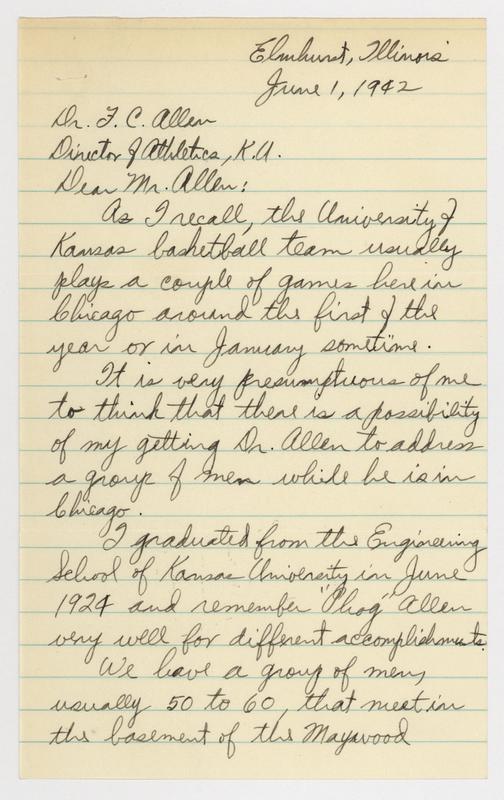 Elmhurst, Illinois
June 1, 1942
Dr. F. C. Allen
Director of Athletics, K.U.
Dear Mr. Allen:
As I recall, the University of
Kansas basketball team usually
plays a couple of games here in
Chicago around the first of the
year or in January sometime.
It is very presumptuous of me
to think that there is a possibility
of my getting Dr. Allen to address
a group of men while he is in
Chicago.
I graduated from the Engineering
School of Kansas University in June
1924 and remember "Phog" Allen
very well for different accomplishments.
We have a group of men,
usually 50 to 60, that meet in
the basement of the Maywood